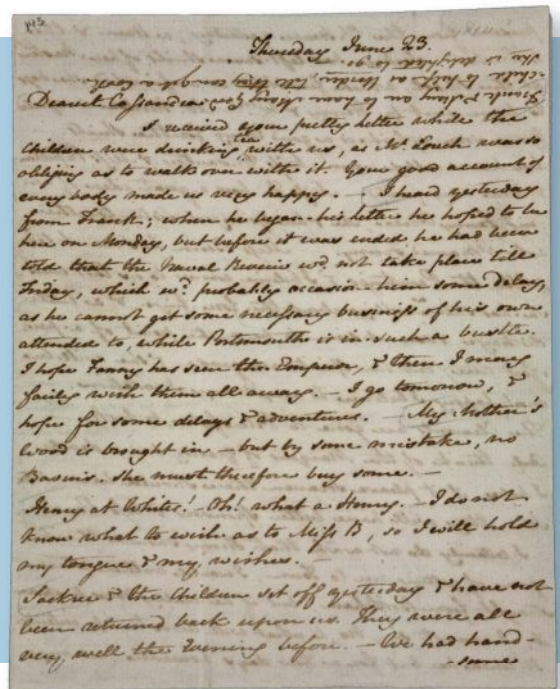 Thursday June 23.
Dearest Cassandra
I received your pretty letter while the
children were drinking tea with us, as Mr. Louch was so
obliging as to walk over with it. Your good account of
every body made us very happy. — I heard yesterday
from Frank; when he began his letter he hoped to be
here on Monday, but before it was ended he had been
told that the Naval Review wd. not take place till
Friday, which wd. probably occasion him some delay,
as he cannot get some necessary business of his own
attended to, while Portsmouth is in such a bustle.
I hope Fanny has seen the Emperor, & then I may
fairly wish them all away. — I go tomorrow, &
hope for some delays & adventures. — My Mother's
Wood is brought in — but by some mistake, no
Bavins. She must therefore buy some. —
Henry at Whites! — Oh! what a Henry. — I do not
know what to wish as to Miss B, so I will hold
my tongue & my wishes. —
Sackree & the children set off yesterday & have not
been returned back upon us. They were all
very well the Evening before. — We had hand-
-some